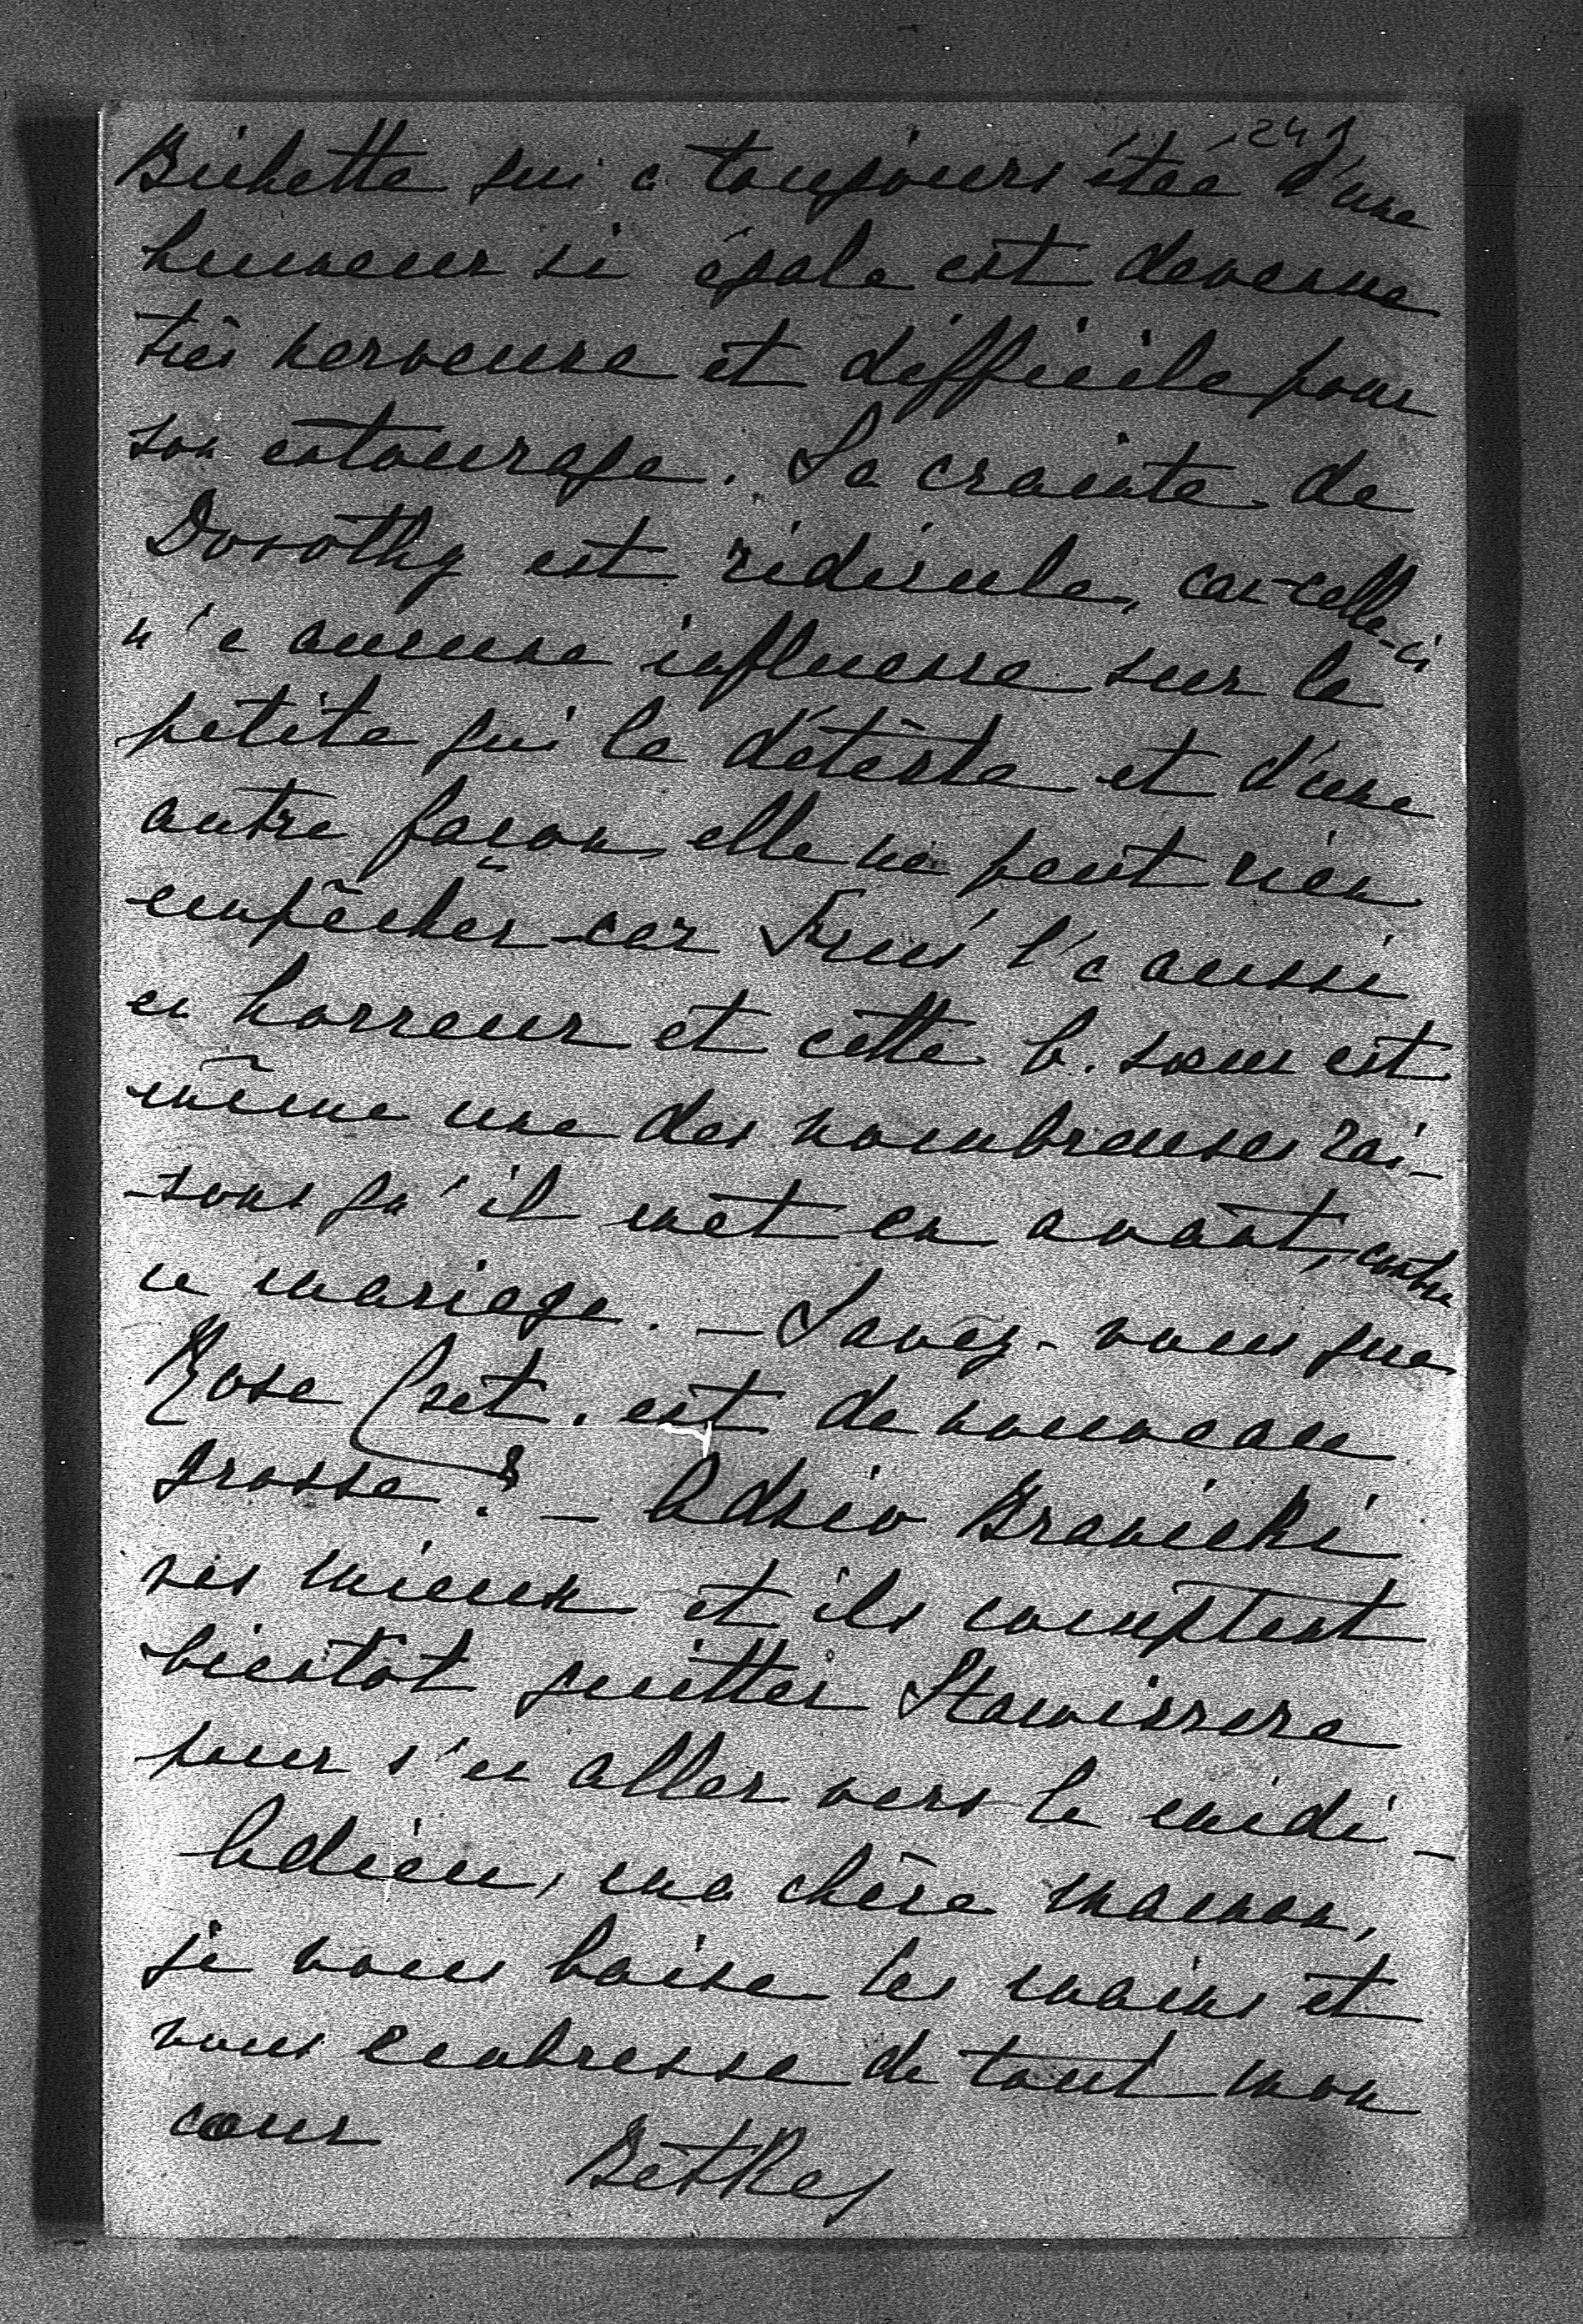 241
Bichette qui a toujours étée d'une
humeur si égale est devenue
très nerveuse et difficile pour
son entourage. Sa crainte de
Dorothy est ridicule, car celle-ci
n'a aucune influence sur la
petite qui la détèste et d'une
autre façon, elle ne peut rien
empêcher car l'a aussi
en horreur et cette b. sœur est
même une des nombreuses rai-
-sons qu'il mèt en avant, contre
ce mariage. – Savez-vous que
Rose est de nouveau
grosse? – Adzio Branicki
vas mieux et ils comptent
bientôt quitter Stawiszcze
pour s'en aller vers le midi –
Adieu, ma chère maman,
je vous baise les mains et
vous embrasse de tout mon
cœur Betka